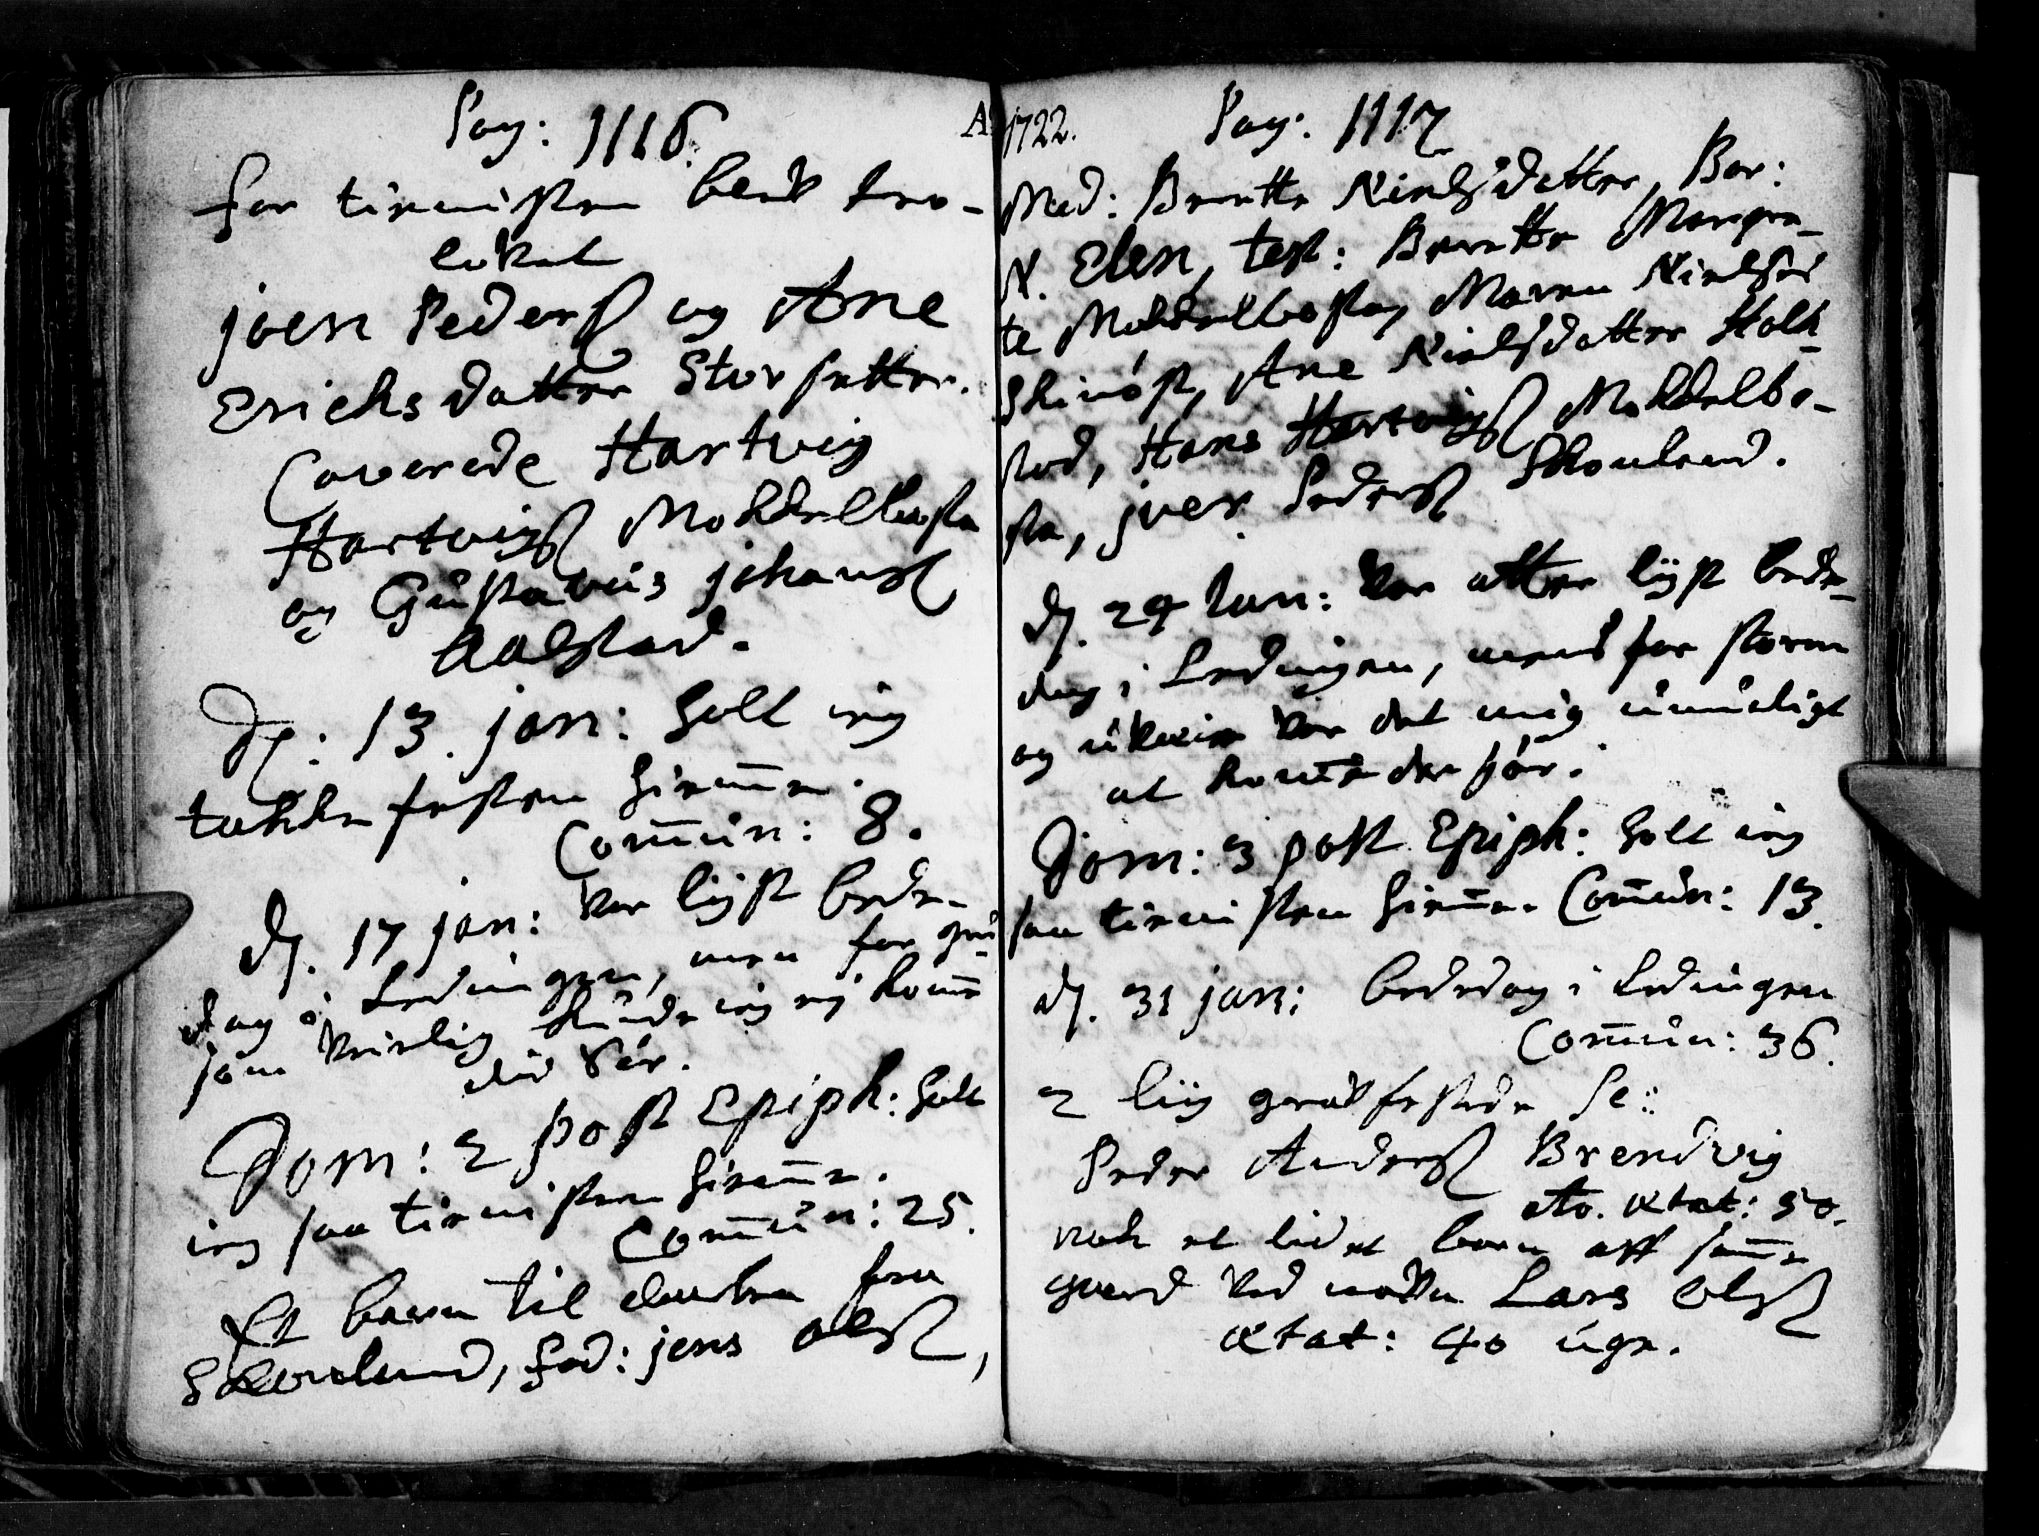 Pag: 1116.
for tienisten bleve tro-
lovet
joen Pederß og Ane
Erichsdatter Storsetter.
Caverede Hartvig
Hartvigß Mokkelbosta
og Gustavus johanß
Aalstad.
D: 13. jan: holt ieg
takkefesten hiem̄e.
Com̄un: 8.
d. 17 jan: var lyst bede-
dag i Lødingen, men for
som veirlig kunde ieg ej kom̄e
did
Dom: 2 post Epiph: holt
ieg saa tienisten hiem̄e.
Com̄un: 25.
Et barn til daaben fra
Skovland, Fad: jens olß,
A 1722.
Pag: 1117
Mod: Beritte Nielsdatter, Bar:
N. Elen, test: Beritte Margre-
te Mokkelbosta, Maren Nielsd
Ane Nielsdatter Hol-
stad, Hans Hartvigß Mokkelbo-
sta, jver Pederß Skovland.
d. 24 Jan: var atter lyst bede-
dag i Lødingen, mens for storm
og uveir var det mig umuligt
at kom̄e der hør.
Dom: 3 post Epiph: holt ieg
saa tienisten hiem̄e. Com̄un: 13.
d. 31 jan: bededag i Lødingen
Com̄un: 36.
2 liig gravfestede Sc:
Peder Anderß Brendvig
Ao. ætat: 50.
nok et lidet barn aff sam̄e
gaard ved navn Lars olß
ætat: 40 uger.